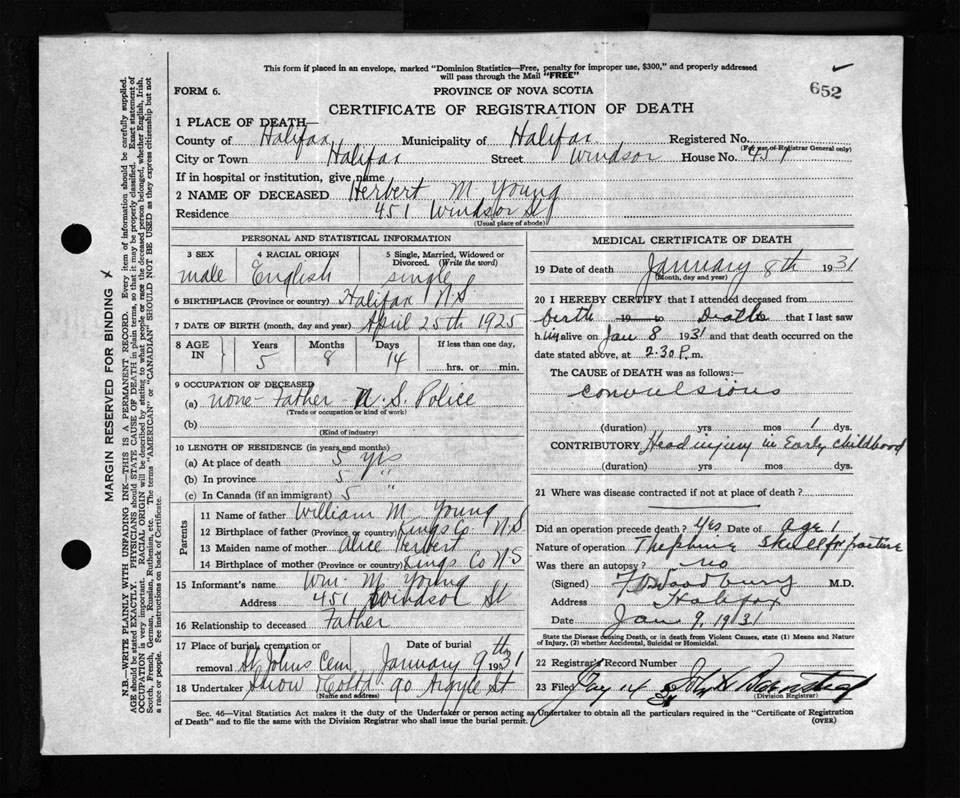 This form if placed in an envelope, marked "Dominion Statistics—Free, penalty for improper use, $300," and properly addressed
will pass through the Mail "FREE"
652
FORM 6.
PROVINCE OF NOVA SCOTIA
CERTIFICATE OF REGISTRATION OF DEATH
1 PLACE OF DEATH—
County of Halifax Municipality of Halifax Registered No.
(For use of Registrar General only)
City or Town Halifax Street Windsor House No. 451
If in hospital or institution, give name
2 NAME OF DECEASED Herbert M Young
Residence 451 Windsor St
(Usual place of abode)
PERSONAL AND STATISTICAL INFORMATION
3 SEX 4 RACIAL ORIGIN 5 Single, Married, Widowed or Divorced. (Write the word)
male English single
6 BIRTHPLACE (Province or country) Halifax N S
7 DATE OF BIRTH (month, day and year) April 25th 1925
8 AGE IN Years Months Days If less than one day,
5 8 14 hrs. or min.
9 OCCUPATION OF DECEASED
(a) none - Father - N.S. Police
(Trade or occupation or kind of work)
(b)
(Kind of industry)
10 LENGTH OF RESIDENCE (in years and months)
(a) At place of death 5 yrs
(b) In province 5 "
(c) In Canada (if an immigrant) 5 "
Parents
11 Name of father William M Young
12 Birthplace of father (Province or country) Kings Co N S
13 Maiden name of mother Alice Herbert
14 Birthplace of mother (Province or country) Kings Co N S
15 Informant's name Wm. M Young
Address 451 Windsor St
16 Relationship to deceased Father
17 Place of burial, cremation or removal St Johns Cem Date of burial January 9th 1931
18 Undertaker Snow & Co Ltd 90 Argyle St
(Name and address)
MEDICAL CERTIFICATE OF DEATH
19 Date of death January 8th 1931
(Month, day and year)
20 I HEREBY CERTIFY that I attended deceased from
birth 19 to Death that I last saw
him alive on Jan 8 1931 and that death occurred on the
date stated above, at 2.30 P.m.
The CAUSE of DEATH was as follows:—
convulsions
(duration) yrs mos 1 dys.
CONTRIBUTORY Head injury in Early childhood
(duration) yrs mos dys.
21 Where was disease contracted if not at place of death?
Did an operation precede death? Yes Date of age 1
Nature of operation Thephine skull for fracture
Was there an autopsy? no
(Signed) F D Woodbury M.D.
Address Halifax
Date Jan 9, 1931
State the Disease causing Death, or in death from Violent Causes, state (1) Means and Nature
of Injury, (2) whether Accidental, Suicidal or Homicidal.
22 Registrar's Record Number
23 Filed Jan 14 31
(Division Registrar)
Sec. 46—Vital Statistics Act makes it the duty of the Undertaker or person acting as Undertaker to obtain all the particulars required in the "Certificate of Registration
of Death" and to file the same with the Division Registrar who shall issue the burial permit.
(OVER)
MARGIN RESERVED FOR BINDING
N.B.—WRITE PLAINLY WITH UNFADING INK—THIS IS A PERMANENT RECORD. Every item of information should be carefully supplied.
AGE should be stated EXACTLY. PHYSICIANS should STATE CAUSE OF DEATH in plain terms, so that it may be properly classified. Exact statement of
OCCUPATION is very important. RACIAL ORIGIN will be described by stating to what people or race the deceased person belonged, whether English, Irish,
Scotch, French, German, Russian, Ruthenian, etc. The terms "AMERICAN" or "CANADIAN" SHOULD NOT BE USED as they express citizenship but not
a race or people. See instructions on back of Certificate.